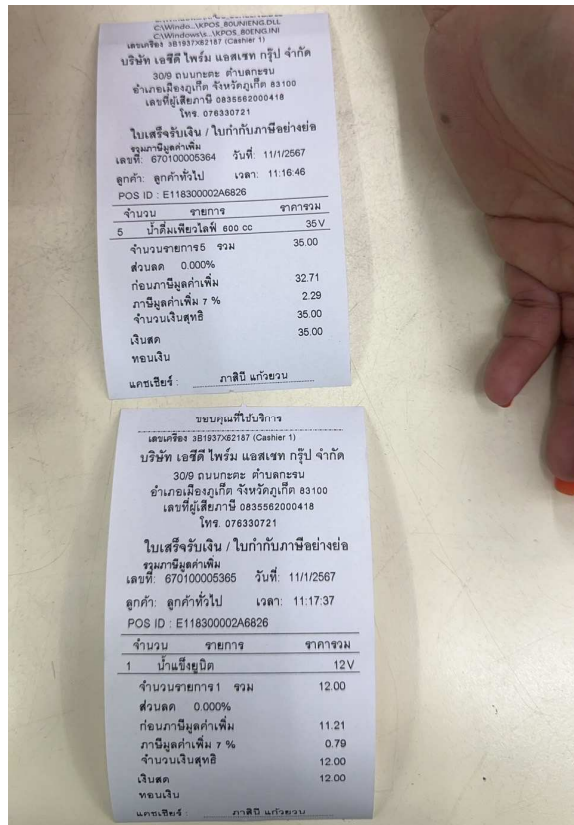 C:\Windo...\KPOS_80UNIENG.DLL
C:\Windows\s...\KPOS_80ENG.INI
เลขเครื่อง 3B1937X62187 (Cashier 1)
บริษัท เอซีดี ไพร์ม แอสเซท กรุ๊ป จำกัด
30/9 ถนนกะตะ ตำบลกะรน
อำเภอเมืองภูเก็ต จังหวัดภูเก็ต 83100
เลขที่ผู้เสียภาษี 0835562000418
โทร. 076330721
ใบเสร็จรับเงิน / ใบกำกับภาษีอย่างย่อ
รวมภาษีมูลค่าเพิ่ม
เลขที่: 670100005364 วันที่: 11/1/2567
ลูกค้า: ลูกค้าทั่วไป เวลา: 11:16:46
POS ID : E118300002A6826
จำนวน รายการ ราคารวม
5 น้ำดื่มเพียวไลฟ์ 600 cc 35V
จำนวนรายการ5 รวม 35.00
ส่วนลด 0.000%
ก่อนภาษีมูลค่าเพิ่ม 32.71
ภาษีมูลค่าเพิ่ม 7 % 2.29
จำนวนเงินสุทธิ 35.00
เงินสด 35.00
ทอนเงิน
แคชเชียร์ : ภาสินี แก้วยวน
ขอบคุณที่ใช้บริการ
เลขเครื่อง 3B1937X62187 (Cashier 1)
บริษัท เอซีดี ไพร์ม แอสเซท กรุ๊ป จำกัด
30/9 ถนนกะตะ ตำบลกะรน
อำเภอเมืองภูเก็ต จังหวัดภูเก็ต 83100
เลขที่ผู้เสียภาษี 0835562000418
โทร. 076330721
ใบเสร็จรับเงิน / ใบกำกับภาษีอย่างย่อ
รวมภาษีมูลค่าเพิ่ม
เลขที่: 670100005365 วันที่: 11/1/2567
ลูกค้า: ลูกค้าทั่วไป เวลา: 11:17:37
POS ID : E118300002A6826
จำนวน รายการ ราคารวม
1 น้ำแข็งยูนิต 12V
จำนวนรายการ1 รวม 12.00
ส่วนลด 0.000%
ก่อนภาษีมูลค่าเพิ่ม 11.21
ภาษีมูลค่าเพิ่ม 7 % 0.79
จำนวนเงินสุทธิ 12.00
เงินสด 12.00
ทอนเงิน
แคชเชียร์ : ภาสินี แก้วยวน